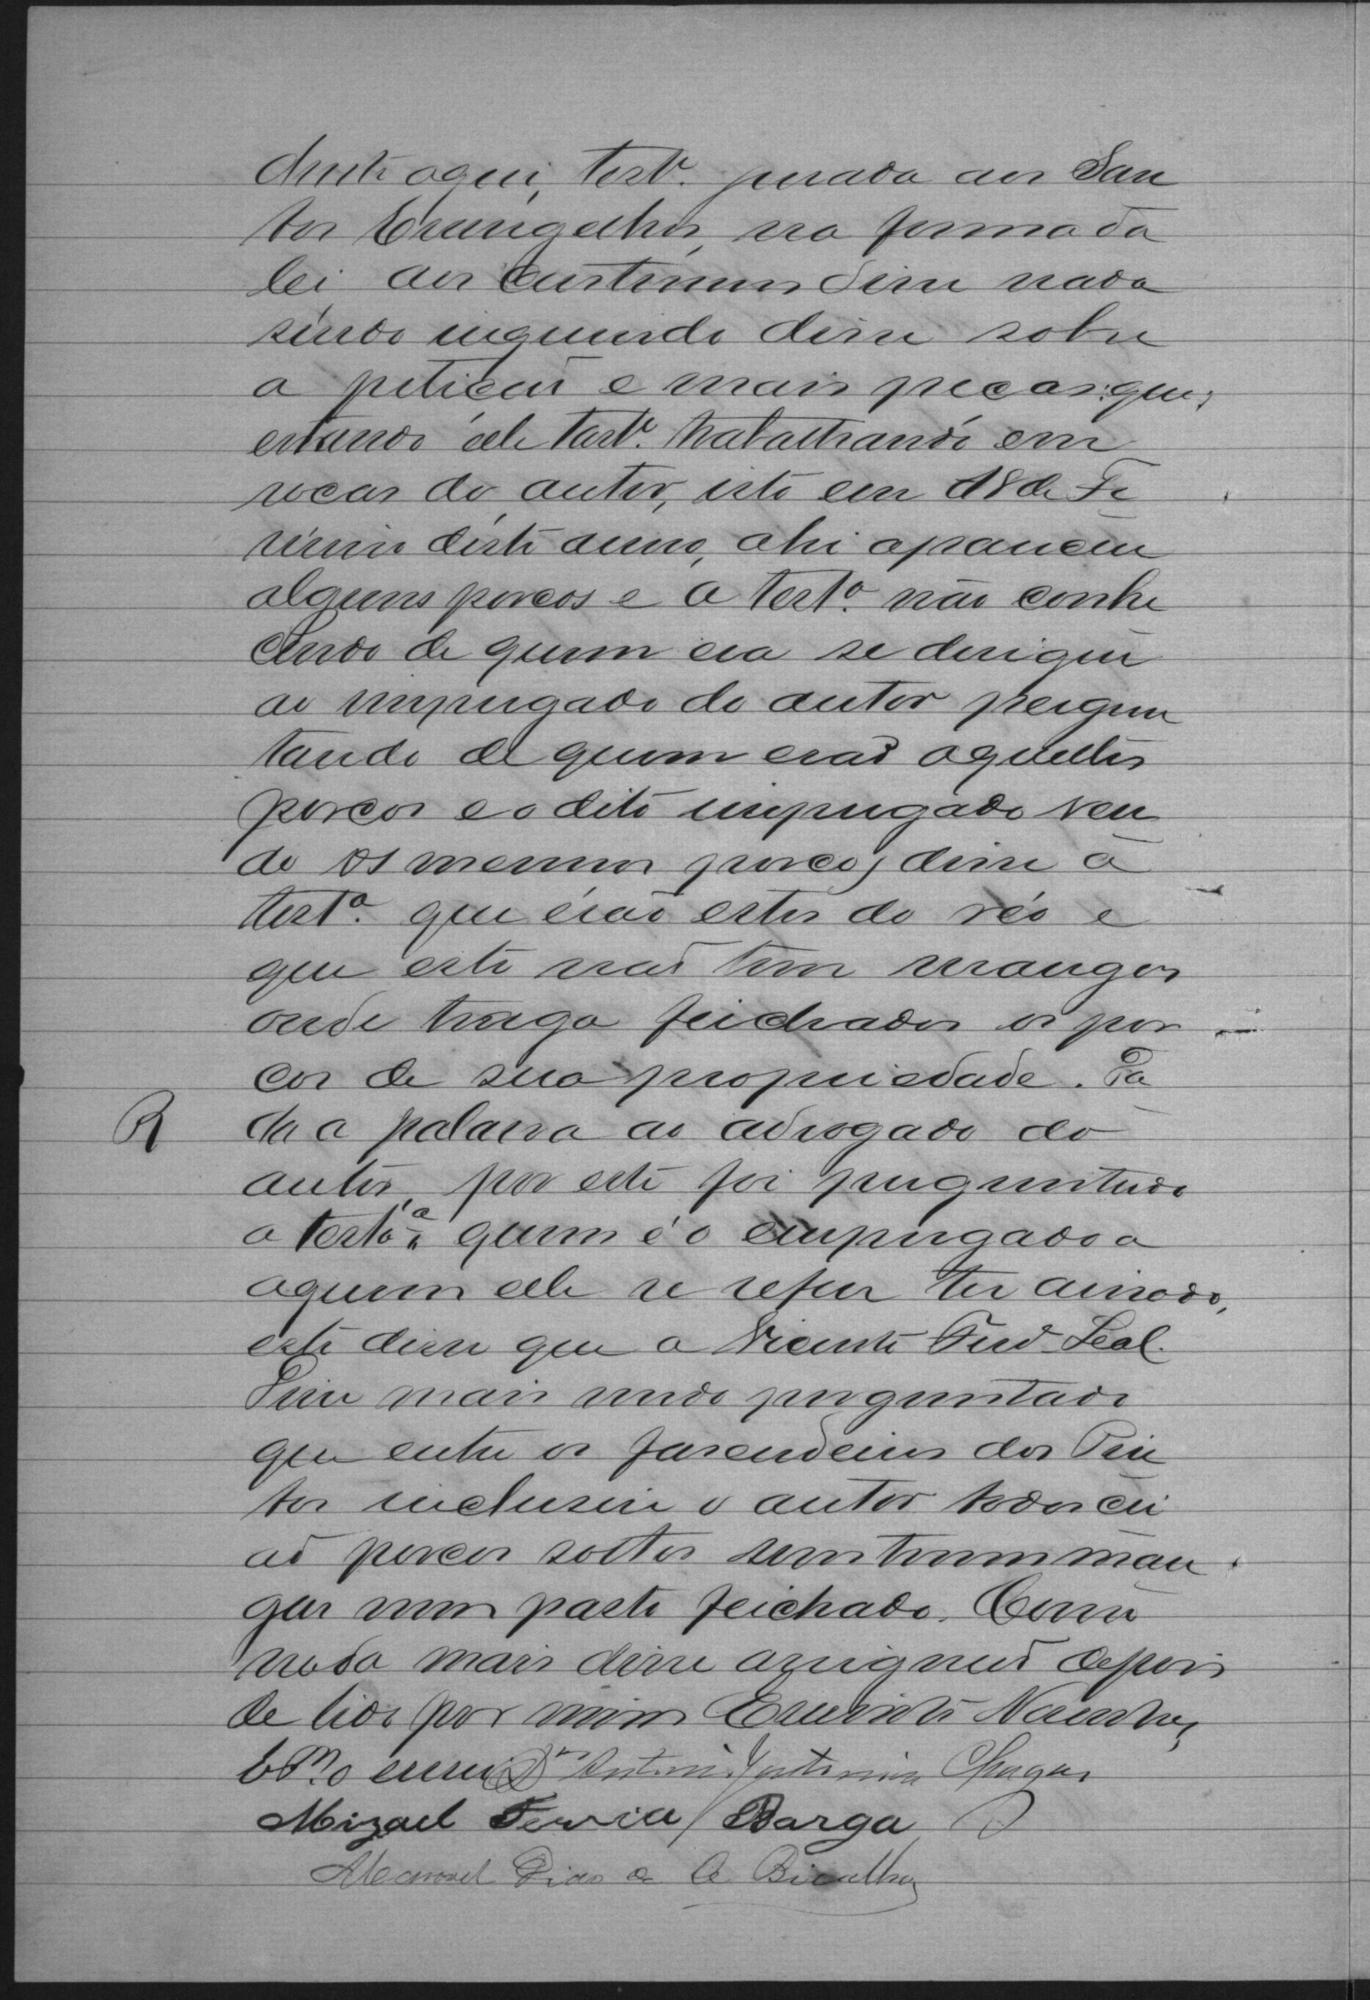 dente aqui, test.ª jurada aos San
tos Evangelhos, na forma da
lei aos custumes disse nada
sendo inquerido disse sobre
a peticão e mais pecas: que,
estando elle test.ª trabalhando em
rocas do autor, isto em 18 de Fe
vereiro deste anno, ahi aparecêu
alguns porcos e a test.ª não conhe
cendo de quem era se derigiu
ao impregado do autor pergun
tando de quem erão aquelles
porcos e o dito impregado ven
do os mesmos porcos, disse á
test.ª que érão estes do réo e
que este não tem mangas
onde traga feichados os por
cos de sua propriedade. Da
R
da a palavra ao advogado do
autor, por este foi perguntado
a testª quem é o empregado a
aquem elle se refere ter
este disse que a Vicente Leal.
Disse mais sendo perguntado
que entre os fasendeiros dos Pin
tos inclusive o autor todos cri
ão porcos soltos sem terem man
gas nem pasto feichado. Como
nada mais disse assignou depois
de lido por mim
Antonio Chagas
Mizael Barga
Manoel Dias de A Bicalho